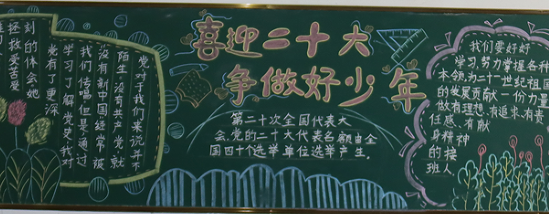 喜迎二十大
争做好少年
第二十次全国代表大
会,党的二十大代表名额由全
国四十个选举单位选举产生。
党对于我们来说并不
陌生,没有共产党就
没有新中国经常被
我们传唱,但是通过
学习了解党史,我对
党有了更深
刻的体会,她
拯救爱苦爱
我们要好好
学习,努力掌握各种
本领,为二十一世纪祖国
的发展贡献一份力量
做有理想、有追求、有责
任感、有献
身精神
的接
班人